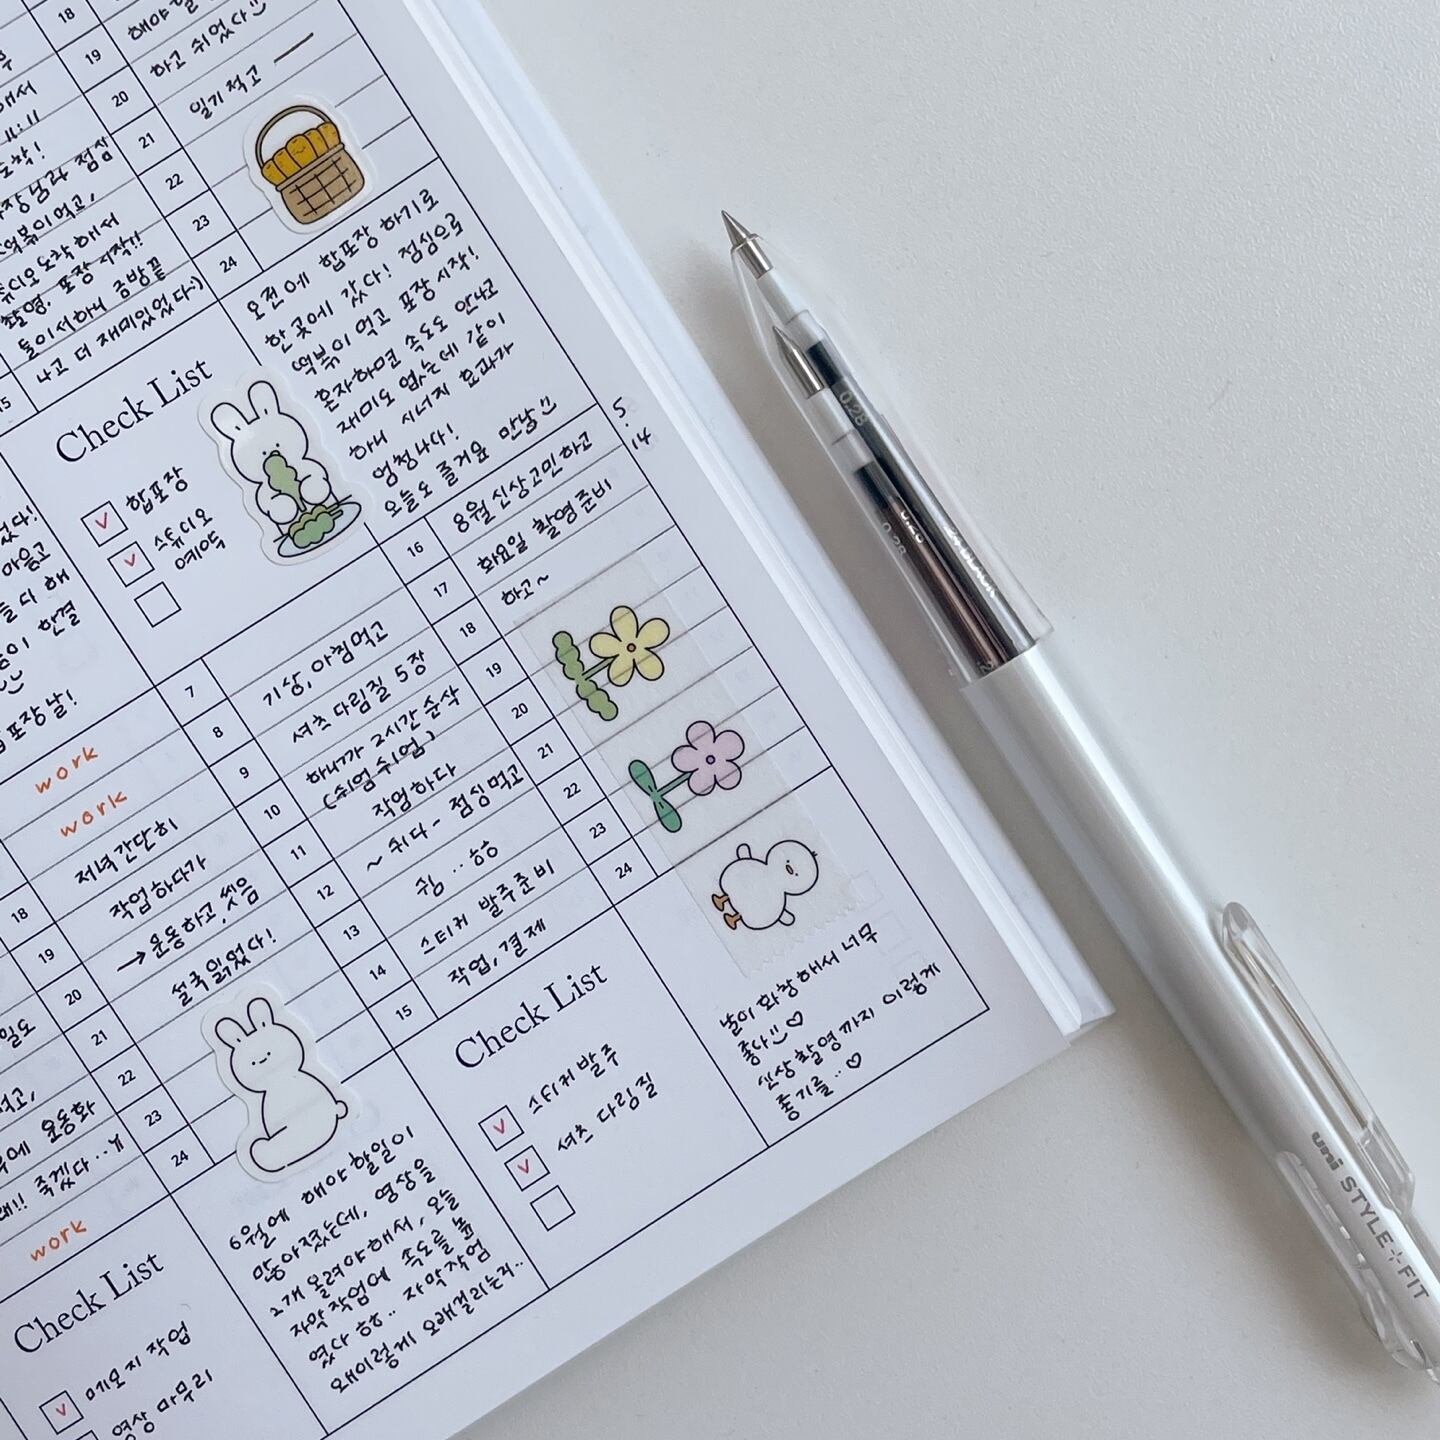 18
19
20
21
22
23
24
하고 쉬었다
일기 적고
오전에 합포장 하기로
한 곳에 갔다! 점심으로
떡볶이 먹고 포장 시작!
혼자하면 속도도 안나고
재미도 없는데 같이
하니 시너지 효과가
엄청나다!
오늘도 즐거운 만남
도착!
떡볶이 먹고,
스튜디오 도착해서
촬영, 포장 시작!!
둘이서하니 금방끝
나고 더 재미있었다:)
15
Check List
v 합포장
v 스튜디오
예약
5.
14
16
17
18
19
20
21
22
23
24
8월 신상고민하고
화요일 촬영준비
하고~
7
8
9
10
11
12
13
14
15
기상, 아침먹고
셔츠 다림질 5장
하니까 2시간 순삭
(쉬엄 쉬엄)
작업하다
~ 쉬다 - 점심먹고
쉼 .. ㅎㅎ
스티커 발주준비
작업, 결제
Check List
v 스티커 발주
v 셔츠 다림질
날이 화창해서 너무
좋다 ♡
색상 촬영까지 이렇게
좋기를.. ♡
work
work
저녁 간단히
작업하다가
→ 운동하고, 씻음
설국 읽었다!
18
19
20
21
22
23
24
운동화
죽겠다..
work
6월에 해야 할일이
많아졌는데, 영상을
2개 올려야해서, 오늘
자막 작업에 속도를 높
였다 ㅎㅎ.. 자막작업
왜이렇게 오래걸리는지..
Check List
v 메모지 작업
영상 마무리
0.28
0.28
uni STYLE FIT